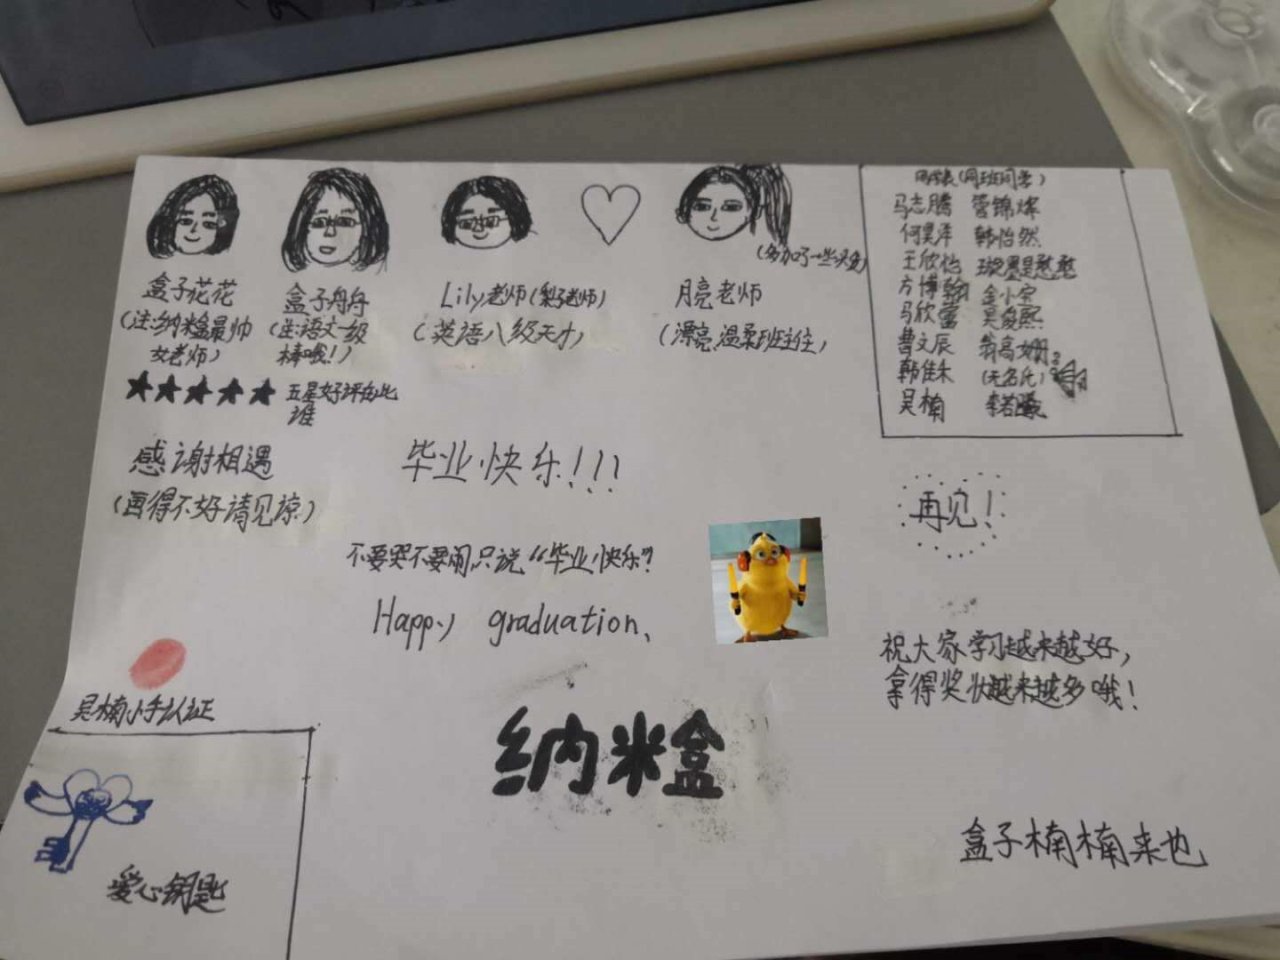 盒子花花
(注:纳米盒最帅
女老师)
盒子舟舟
(注:语文一级
棒哦!)
Lily老师(梨子老师)
(英语八级天才)
月亮老师
(漂亮,温柔班主任)
(多加了一些头发)
(同班同学)
马志腾 管锦烨
何昊泽 韩怡然
王欣怡
方博翰 金小宝
马欣蕾 吴俊熙
曹文辰
韩佳朱 (无名氏)
吴楠 李若曦
★★★★★ 五星好评
感谢相遇
(画得不好请见谅)
毕业快乐!!!
不要哭不要闹只说“毕业快乐”
Happy graduation、
再见!
祝大家学习越来越好,
拿得奖状越来越多哦!
吴楠小手认证
纳米盒
爱心钥匙
盒子楠楠来也